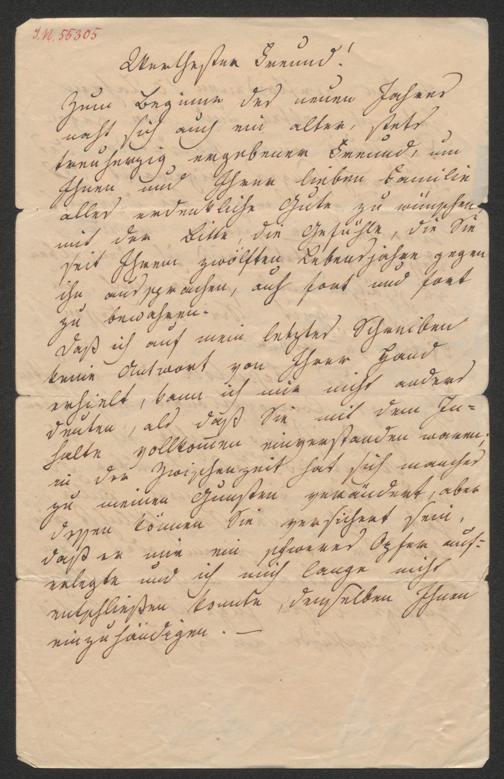 I.N. 55305
Werthester Freund!
Zum Beginne des neuen Jahres
naht sich auch ein alter, stets
treuherzig ergebener Freund, um
Ihnen und Ihrer lieben Familie
alles erdenkliche Gute zu wünschen,
mit der Bitte, die Gefühle, die Sie
seit Ihrem zwölften Lebensjahre gegen
ihn aussprachen, auch fort und fort
zu bewahren.
Daß ich auf mein letztes Schreiben
keine Antwort von Ihrer Hand
erhielt, kann ich mir nicht anders
denken, als daß Sie mit dem In-
halte vollkommen einverstanden waren.
in der Zwischenzeit hat sich manches
zu meinen Gunsten verändert, aber
dessen können Sie versichert sein,
daß er mir ein schweres Opfer auf-
erlegte und ich mich lange nicht
entschließen konnte, denselben Ihnen
einzuhändigen. —